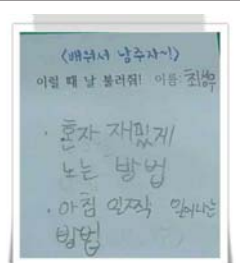 <배워서 남주자~!>
이럴 때 날 불러줘! 이름:최성우
· 혼자 재밌게
노는 방법
· 아침 일찍 일어나는
방법